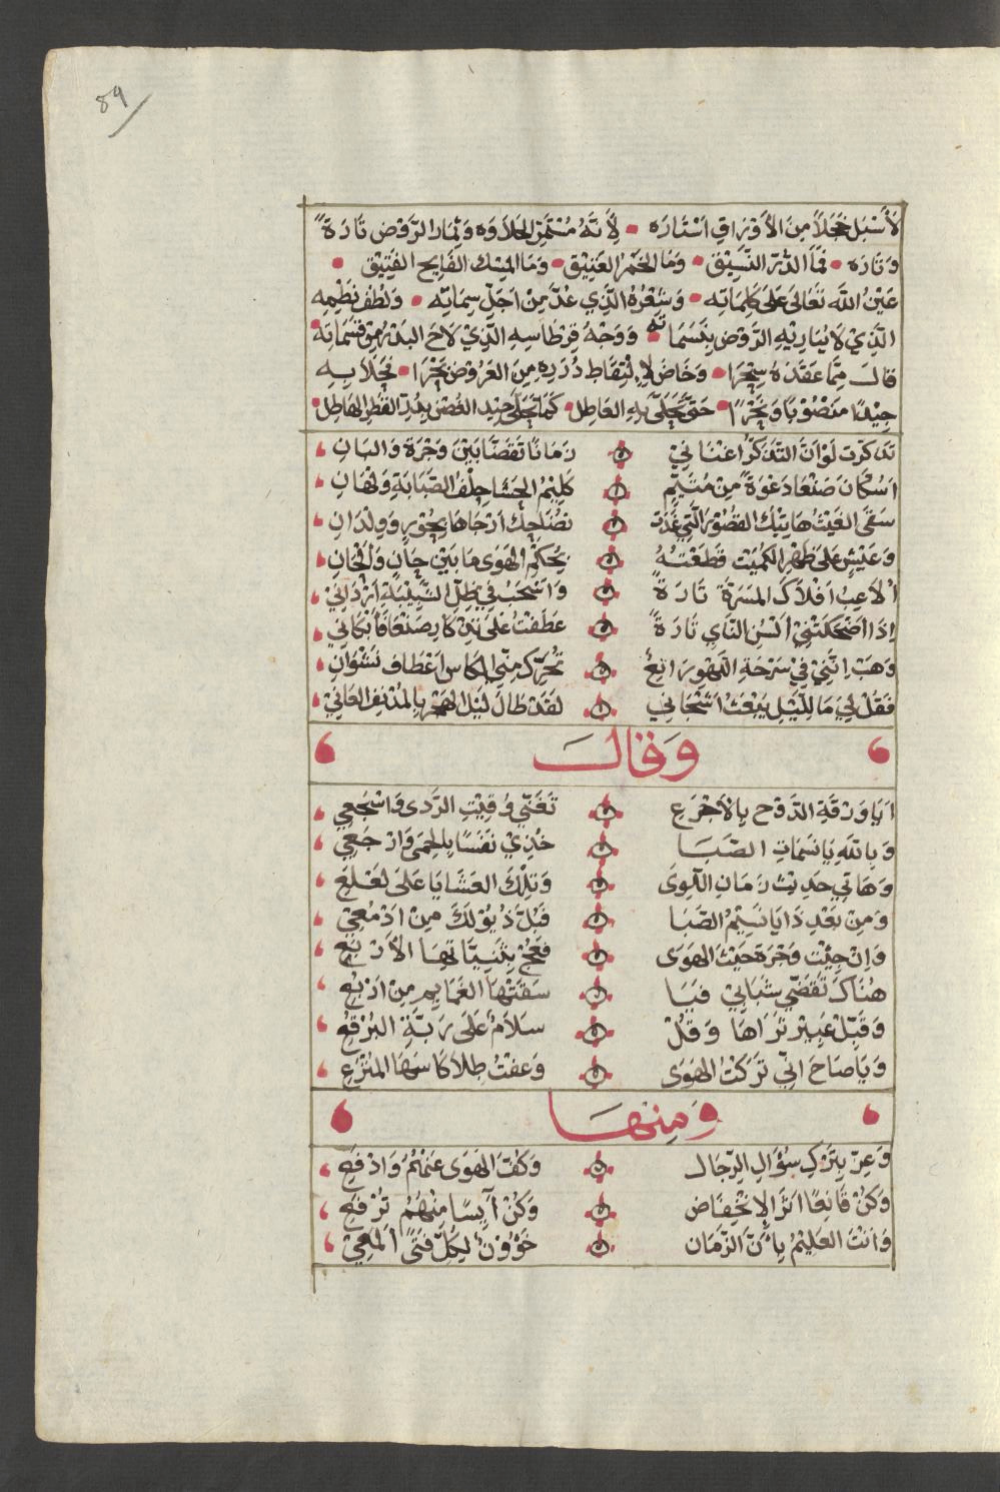 89
لَأَسْبَل خَجَلاً مِنَ الأَوْرَاقِ اسْتَارَه • لِأَنَّهُ مُسْتَمِرّ الحَلَاوَه وَثِمَار الرَّوْضِ تَارَةً
وَتَارَه • فَمَا الدُّرّ النَّسِيْق • وَمَا الخَمْرُ العَتِيْق • وَمَا المِسْك الفَايِح الفَتِيْق •
عَيْنُ اللَّه تَعَالَى عَلَى كَلِمَاتِه • وَشِعْرُهُ الَّذِي عُدَّ مِنْ اَجَلِّ سِمَاتِه • وَلُطْفُ نَظْمِهِ
الَّذِيْ لَا يُبَارِيْهِ الرَّوْض بِنَسَمَاتِه • وَوَجْهُ قِرْطَاسِهِ الَّذِيْ لَاحَ البَدْرُ مِنْ قَسَمَاتِه •
قالَ مِمَّا عَقَدَهُ سِحْرَا • وَخَاضَ لِالْتِقَاطِ دُرَرِهِ مِنَ العَرُوْض بَحْرَا • مُجَلَّا بِهِ
جِيْدًا مَنْصُوْبًا وَنَحْرًا • حَتَّى تَحَلَّى بِهِ العَاطِل • كَمَا تَحَلَّى جِيْد الغُصْن بِدُرِّ القَطْرِ الهَاطِل •
تَذَكَّرْت لَوْ اَنَّ التَذَكُّرَ اغْنَانِي ۞ زَمَانًا تَقَضَّا بَيْنَ وَجْرَة وَالبَانِ
اَسُكَّانَ صَنْعَا دَعْوَةً مِنْ مُتَيَّمٍ ۞ كَلِيْمُ الحَشَا حِلْفُ الصَّبَابَةِ وَلْهَانِ
سَقَى الغَيْثُ هَاتِيْكَ القُصُوْرَ الَّتِي غَدَت ۞ تُضَاحِكُ اَرْجَاهَا بِحُوْرٍ وَوِلْدَانِ
وَعَيْشٍ عَلَى ظَهْرِ الكُمَيْت قَطَعْتُهُ ۞ بِحُكْمِ الهَوَى مَا بَيْنَ جَانٍ وَلْحَانِ
اُلَاعِبُ اَفْلَاكَ المَسَرَّةِ تَارَةً ۞ وَاَسْحَبُ فِي ظِلِّ الشَّبِيْبَةِ اَرْدَانِي
اِذَا اَضْحَكَتْنِيْ اَلْسُنُ النَّايِ تَارَةً ۞ عَطَفْتُ عَلَى تِذْكَارِ صَنْعَا فَاَبْكَانِي
وَهَبْ اِنَّنِيْ فِيْ سَرْحَةِ اللَّهْوِ رَاتِعٌ ۞ تُحَرِّكُ مِنِّي الكَاس اَعْطَافَ نَشْوَانِ
فَقُلْ لِيْ مَا لِلَّيْلِ يَبْعَثُ اَشْجَانِي ۞ لَقَدْ طَالَ لَيْلُ الهَجْرِ بِالمُدْنِفِ العَانِيْ
وَقَالَ
اَيَا وَرْقَةَ الدَّوْح بِالأَجْرَعِ ۞ تَغَنِّي وُقِيْتِ الرَّدَى وَاسْجَعِي
وَبِاللَّهِ يَا نَسَمَاتِ الصَّبَا ۞ خُذِيْ نَفَسًا بِالحِمَى وَارْجَعِي
وَهَاتِي حَدِيْث زَمَانِ اللِّوَى ۞ وَتِلْكَ العَشَايَا عَلَى لَعْلَعِ
وَمِنْ بَعْدِ ذَا يَا نَسِيْمُ الصَّبَا ۞ فَبُلَّ ذُيُوْلَكَ مِنْ اَدْمُعِيْ
وَاِنْ جِئْت وَجْرَة حَيْثُ الهَوَى ۞ فَعُجْ بِثَنِيَّاتِهَا الأَرْبَعِ
هُنَاكَ تَقَضَّى شَبَابِيْ فَيَا ۞ سَقَتْهَا الغَمَايِم مِنْ اَرْبُعِ
وَقَبِّلْ عَبِيْر ثَرَاهَا وَقُلْ ۞ سَلَامٌ عَلَى رَبَّةِ البُرْقُعِ
وَيَا صَاحَ اِنِّي تَرَكْتُ الهَوَى ۞ وَعِفْتُ طِلَا كَاسِهَا المُتْرَعِ
وَمِنْهَا
وَعِزّ بِتَرْكِ سُؤَالِ الرِّجَال ۞ وَكُفَّ الهَوَى عَنْهُمُ وَادْفَعِ
وَكُنْ قَانِعًا اَثَرَ الاِنْخِفَاض ۞ وَكُنْ آيِسًا مِنْهُمُ تُرْفَعِ
وَاَنْتَ العَلِيْمُ بِأَنَّ الزَّمَان ۞ خَؤُوْنٌ لِكُلِّ فَتًى اَلْمَعِيْ